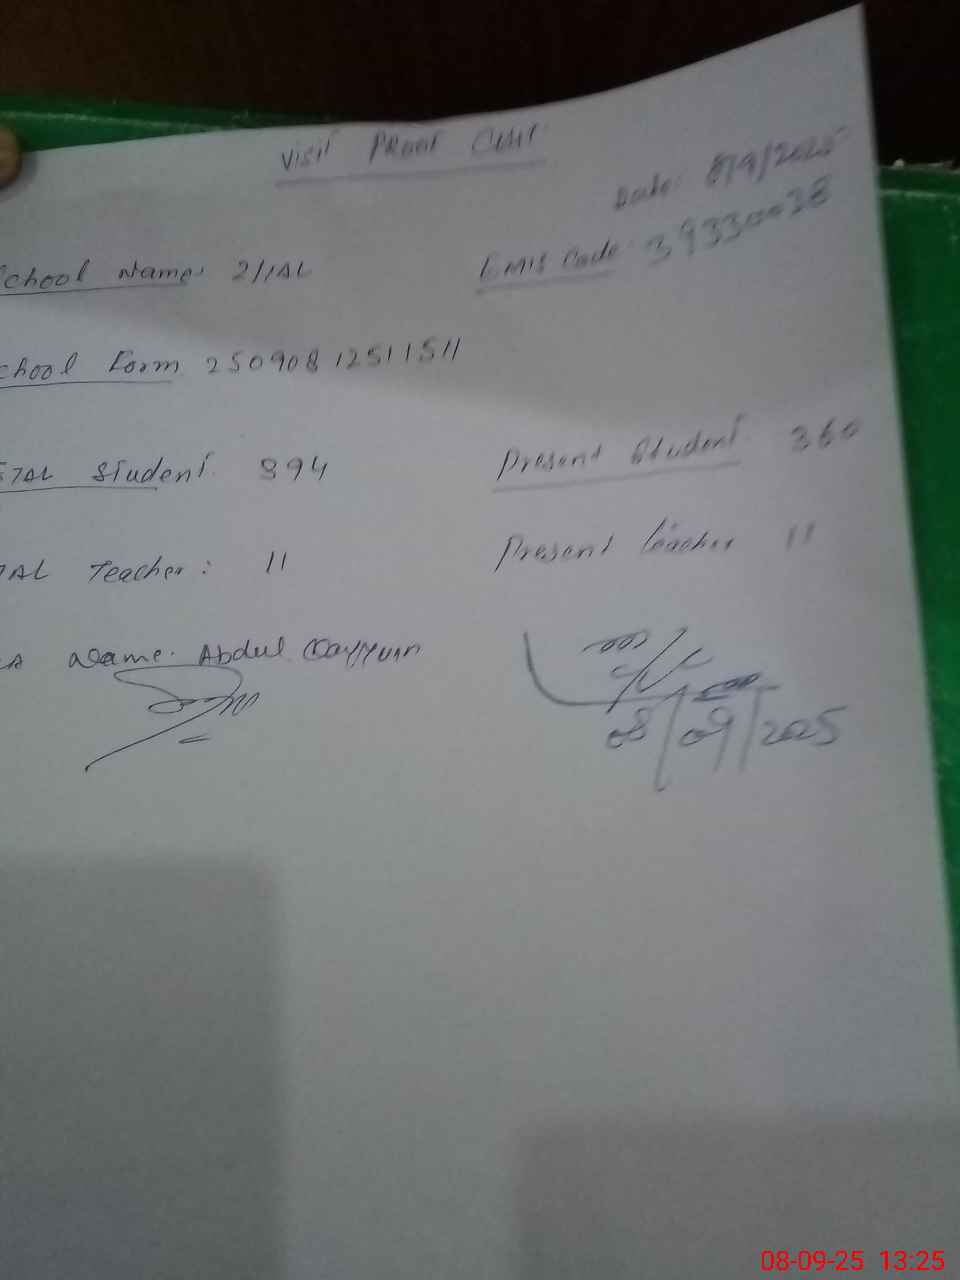 Visit Proof
Date: 8/9/2025
School Name: 2/1AL EMIS Code: 39330028
chool Form 25090812511511
TAL Student 394 Present Student 360
TAL Teacher: 11 Present teacher 11
A Name. Abdul Qayyum
08/09/2025
08-09-25 13:25